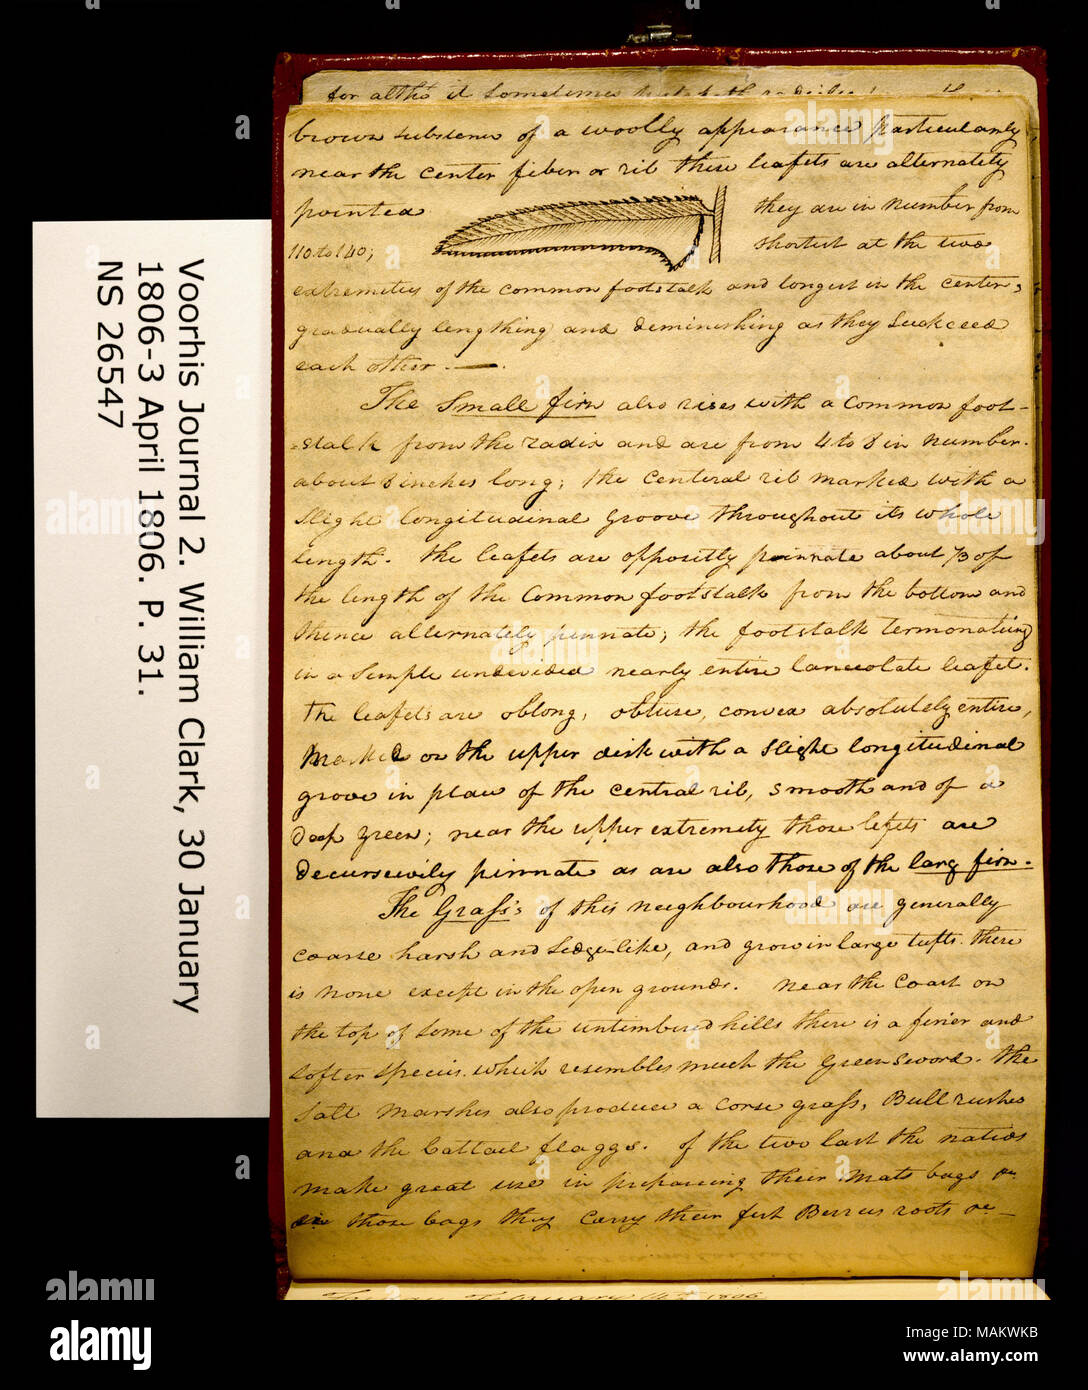 for altho it sometimes
brown substance of a woolly appearance particularly
near the center fiber or rib these leafets are alternately
pointed they are in number from
110 to 140; shortest at the two
extremities of the common footstalk and longest in the center,
gradually lengthing and deminishing as they suckceed
each other. —.
The Small firn also rises with a common foot-
=stalk from the radix and are from 4 to 8 in number.
about 8 inches long; the centeral rib marked with a
slight longitudinal groove throughout its whole
length. the leafets are oppositly pinnate about ⅓ of
the length of the Common footstalk from the bottom and
thence alternately pinnate; the footstalk termonateing
in a Simple undevided nearly entire lanceolate leafet.
the leafets are oblong, obtuse, convex absolutely entire,
marked on the upper disk with a slight longitudinal
grove in place of the central rib, smooth and of a
deep green; near the upper extremity those lefets are
decursively pinnate as are also those of the larg firn.
The Grass's of this neighbourhood are generally
coarse harsh and sedge-like, and grow in large tufts. there
is none except in the open grounds. near the Coast on
the top of some of the untimbered hills there is a finer and
softer species which resembles much the green sword. the
salt marshes also produce a corse grass, Bull rushes
and the Cattail flaggs. of the two last the natives
make great use in prepareing their mats bags &c.
in those bags they carry their fish Berries roots &c—
Voorhis Journal 2. William Clark, 30 January
1806-3 April 1806. P. 31.
NS 26547
alamy
a
alamy
Image ID: MAKWKB
www.alamy.com